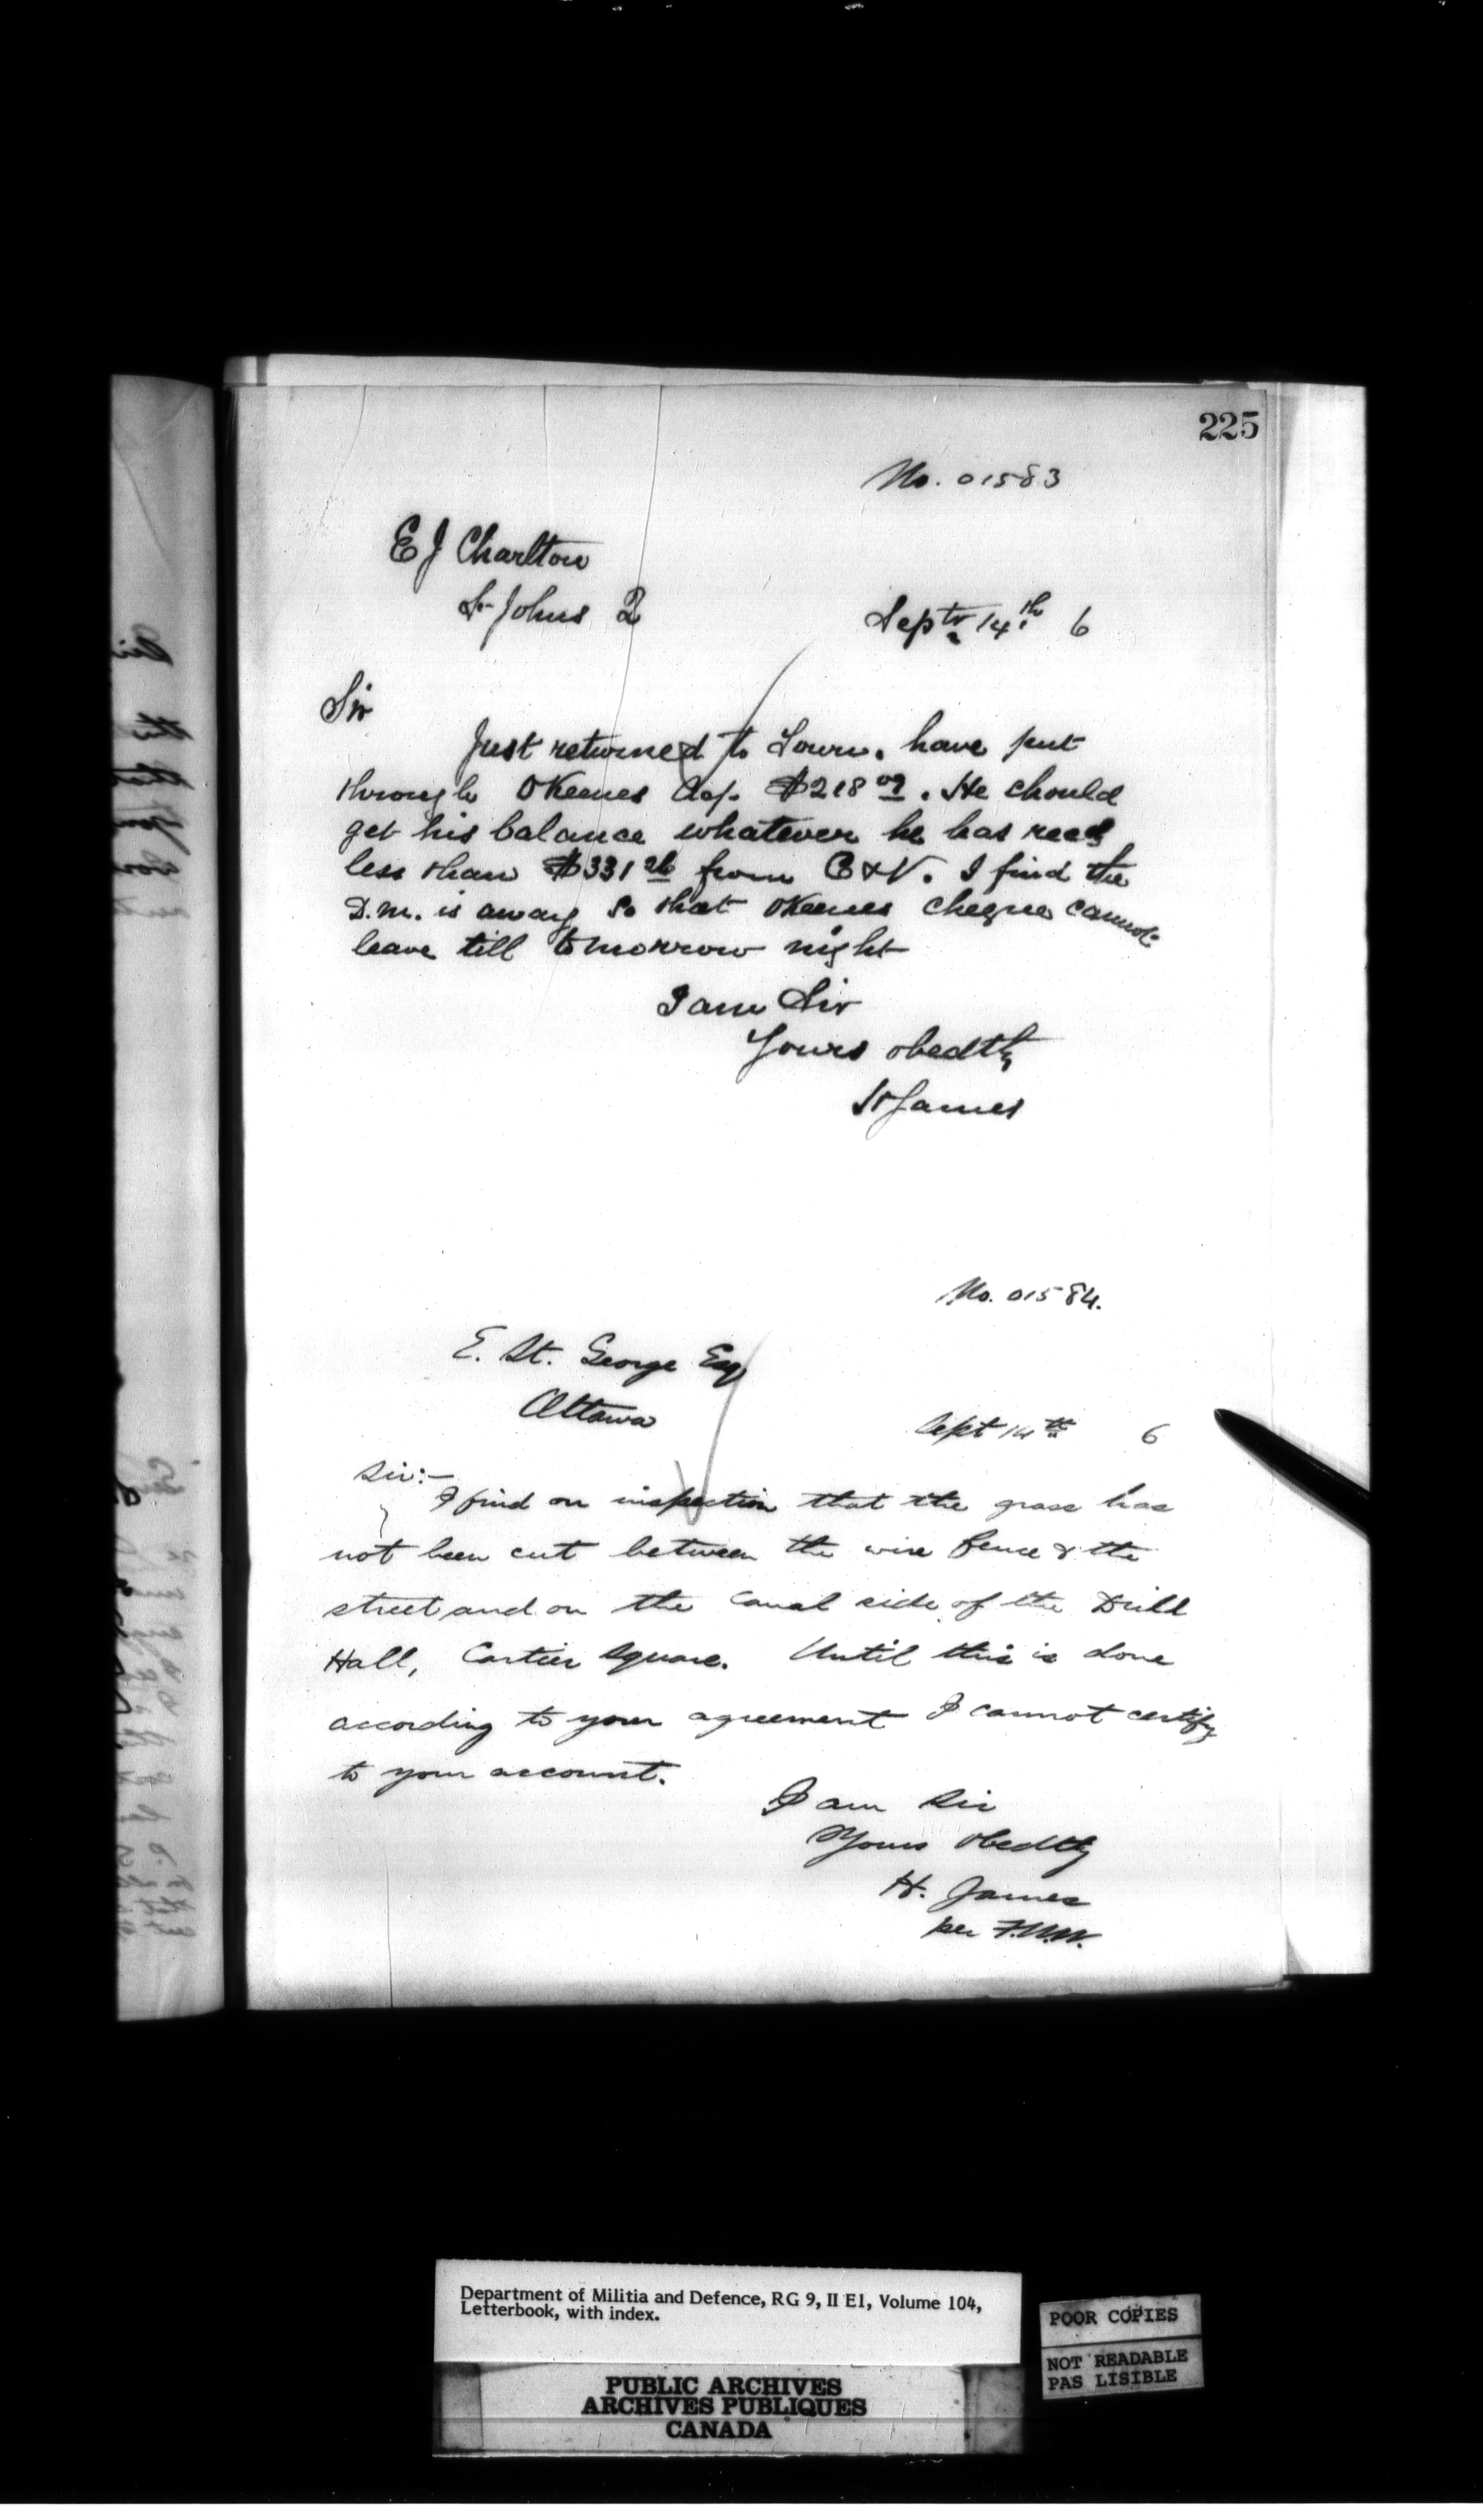 225
No. 01583
E J Charlton
St Johns Q
Septr 14th 6
Sir
Just returned to Town. have put
through OKeenes a/c $218 09. He should
get his balance whatever he has recd
less than $331 26 from C & V. I find the
D.M. is away so that OKeenes cheque cannot
leave till tomorrow night
I am Sir
Yours obedtly
H James
No. 01584.
E. St. George Esq
Ottawa
Sept 14th 6
Sir:-
I find on inspection that the grass has
not been cut between the wire fence & the
street and on the Canal side of the Drill
Hall, Cartier Square. Until this is done
according to your agreement I cannot certify
to your account.
I am Sir
Yours obedtly
H. James
per F.W.W.
Department of Militia and Defence, RG 9, II E1, Volume 104,
Letterbook, with index.
POOR COPIES
NOT READABLE
PAS LISIBLE
PUBLIC ARCHIVES
ARCHIVES PUBLIQUES
CANADA